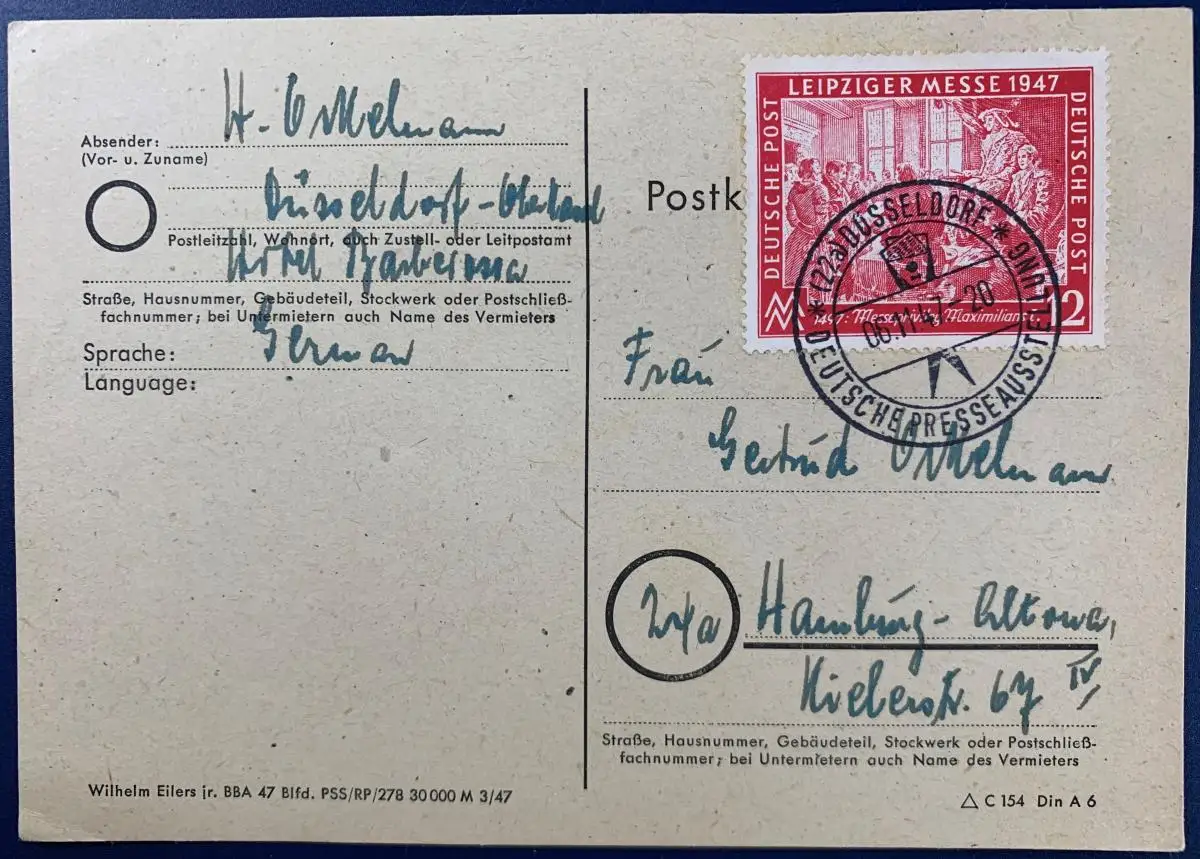 Absender:
(Vor- u. Zuname)
H.
Düsseldorf-
Postleitzahl, Wohnort, auch Zustell- oder Leitpostamt
Hotel Barbarossa
Straße, Hausnummer, Gebäudeteil, Stockwerk oder Postschließ-
fachnummer; bei Untermietern auch Name des Vermieters
Sprache:
German
Language:
Wilhelm Eilers jr. BBA 47 Blfd. PSS/RP/278 30 000 M 3/47
Postk
LEIPZIGER MESSE 1947
DEUTSCHE POST
DEUTSCHE POST
1497: Messeprivileg Maximilians I.
12
* (22a) DÜSSELDORF *
DEUTSCHE PRESSEAUSSTELLUNG
06.11.47-20
Frau
Gertrud
24a Hamburg-Altona,
Kielerstr. 67 IV
Straße, Hausnummer, Gebäudeteil, Stockwerk oder Postschließ-
fachnummer; bei Untermietern auch Name des Vermieters
C 154 Din A 6